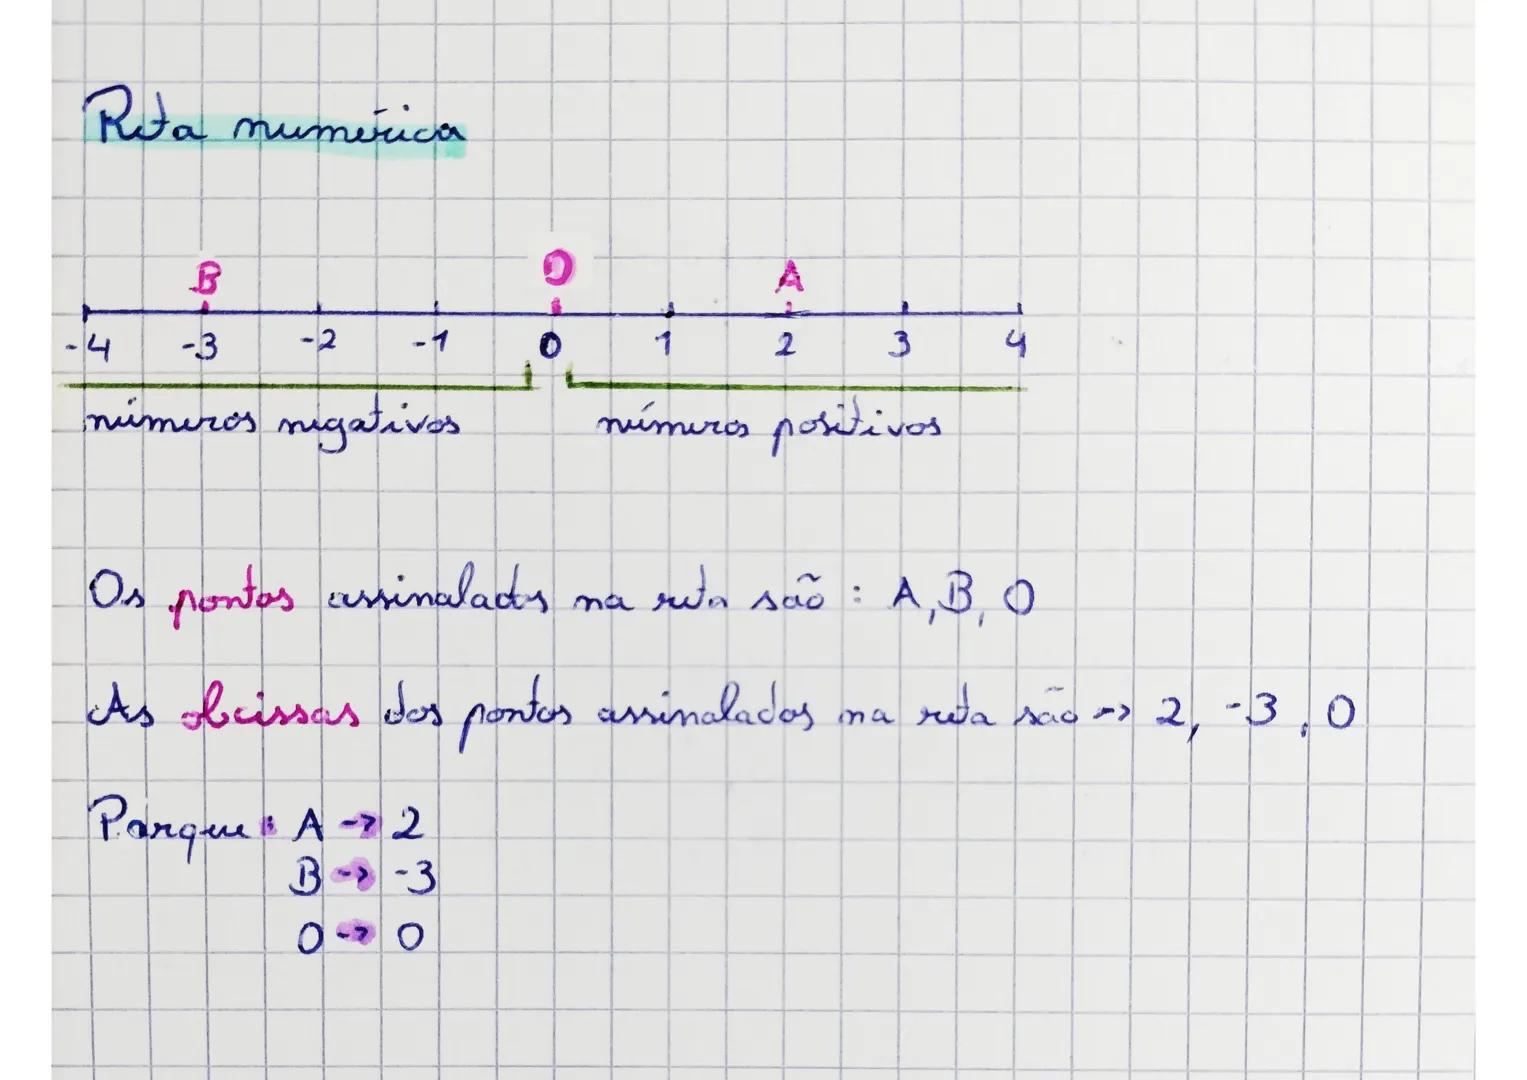 Reta numérica
B O A
-4 -3 -2 -1 0 1 2 3 4
números negativos números positivos
Os pontos assinalados na reta são : A, B, O
As abcissas dos pontos assinalados na reta são -> 2, -3, 0
Porque : A -> 2
B -> -3
O -> 0